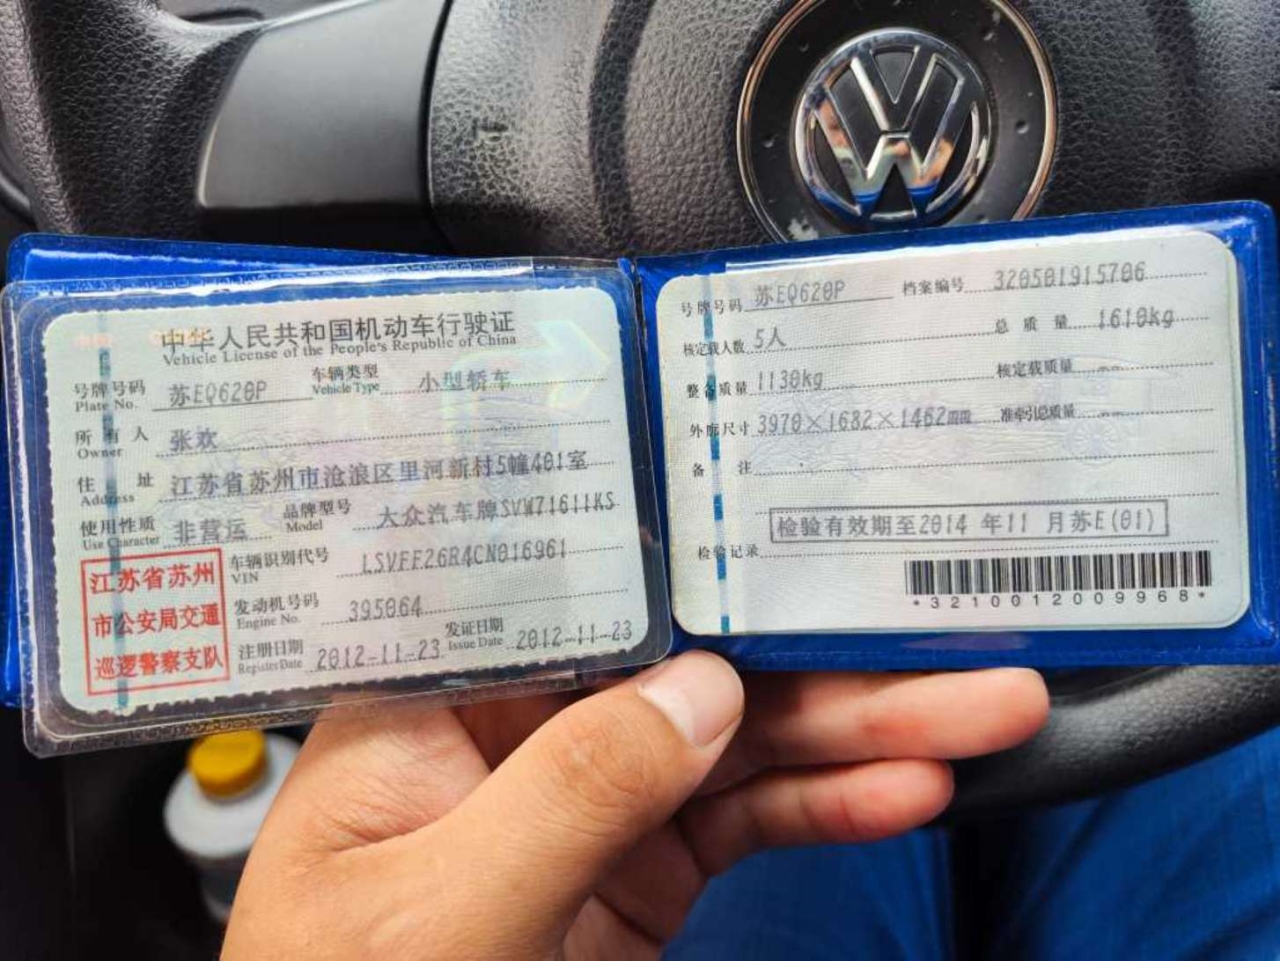 中华人民共和国机动车行驶证
Vehicle License of the People's Republic of China
号牌号码 苏EQ620P 车辆类型 小型轿车
Plate No. Vehicle Type
所有人 张欢
Owner
住址 江苏省苏州市沧浪区里河新村5幢401室
Address
使用性质 非营运 品牌型号 大众汽车牌SVW71611KS
Use Character Model
江苏省苏州
市公安局交通
巡逻警察支队
车辆识别代号 LSVFF26R4CN016961
VIN
发动机号码 395064
Engine No.
注册日期 2012-11-23 发证日期 2012-11-23
Register Date Issue Date
号牌号码 苏EQ620P 档案编号 320501915706
核定载人数 5人 总质量 1610kg
整备质量 1130kg 核定载质量 --
外廓尺寸 3970×1682×1462mm 准牵引总质量 --
备注
检验有效期至2014年11月苏E(01)
检验记录
*3210012009968*